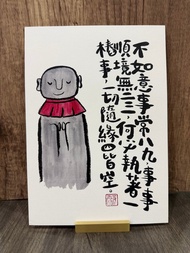 不如意事常八九事事
順境無二三，何必執著一
樁事，一切隨緣四皆空。